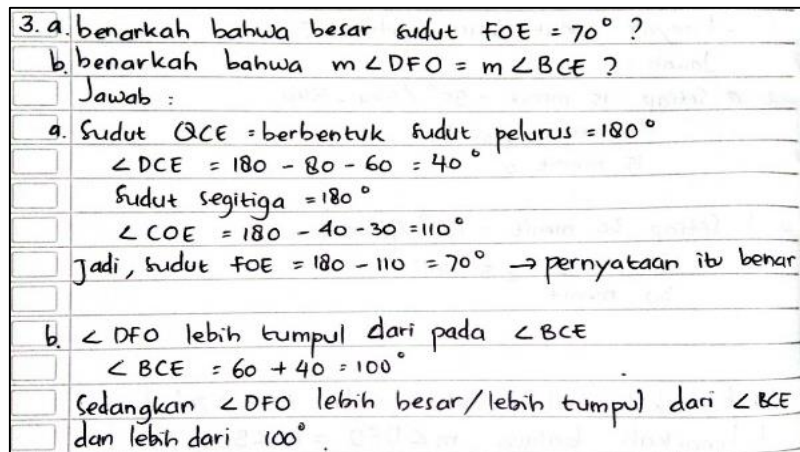 3. a. benarkah bahwa besar sudut FOE = 70° ?
b. benarkah bahwa m∠DFO = m∠BCE ?
Jawab :
a. Sudut QCE = berbentuk sudut pelurus = 180°
∠DCE = 180 - 80 - 60 = 40°
Sudut segitiga = 180°
∠COE = 180 - 40 - 30 = 110°
Jadi, sudut FOE = 180 - 110 = 70° → pernyataan itu benar
b. ∠DFO lebih tumpul dari pada ∠BCE
∠BCE = 60 + 40 = 100°
Sedangkan ∠DFO lebih besar/lebih tumpul dari ∠BCE
dan lebih dari 100°.